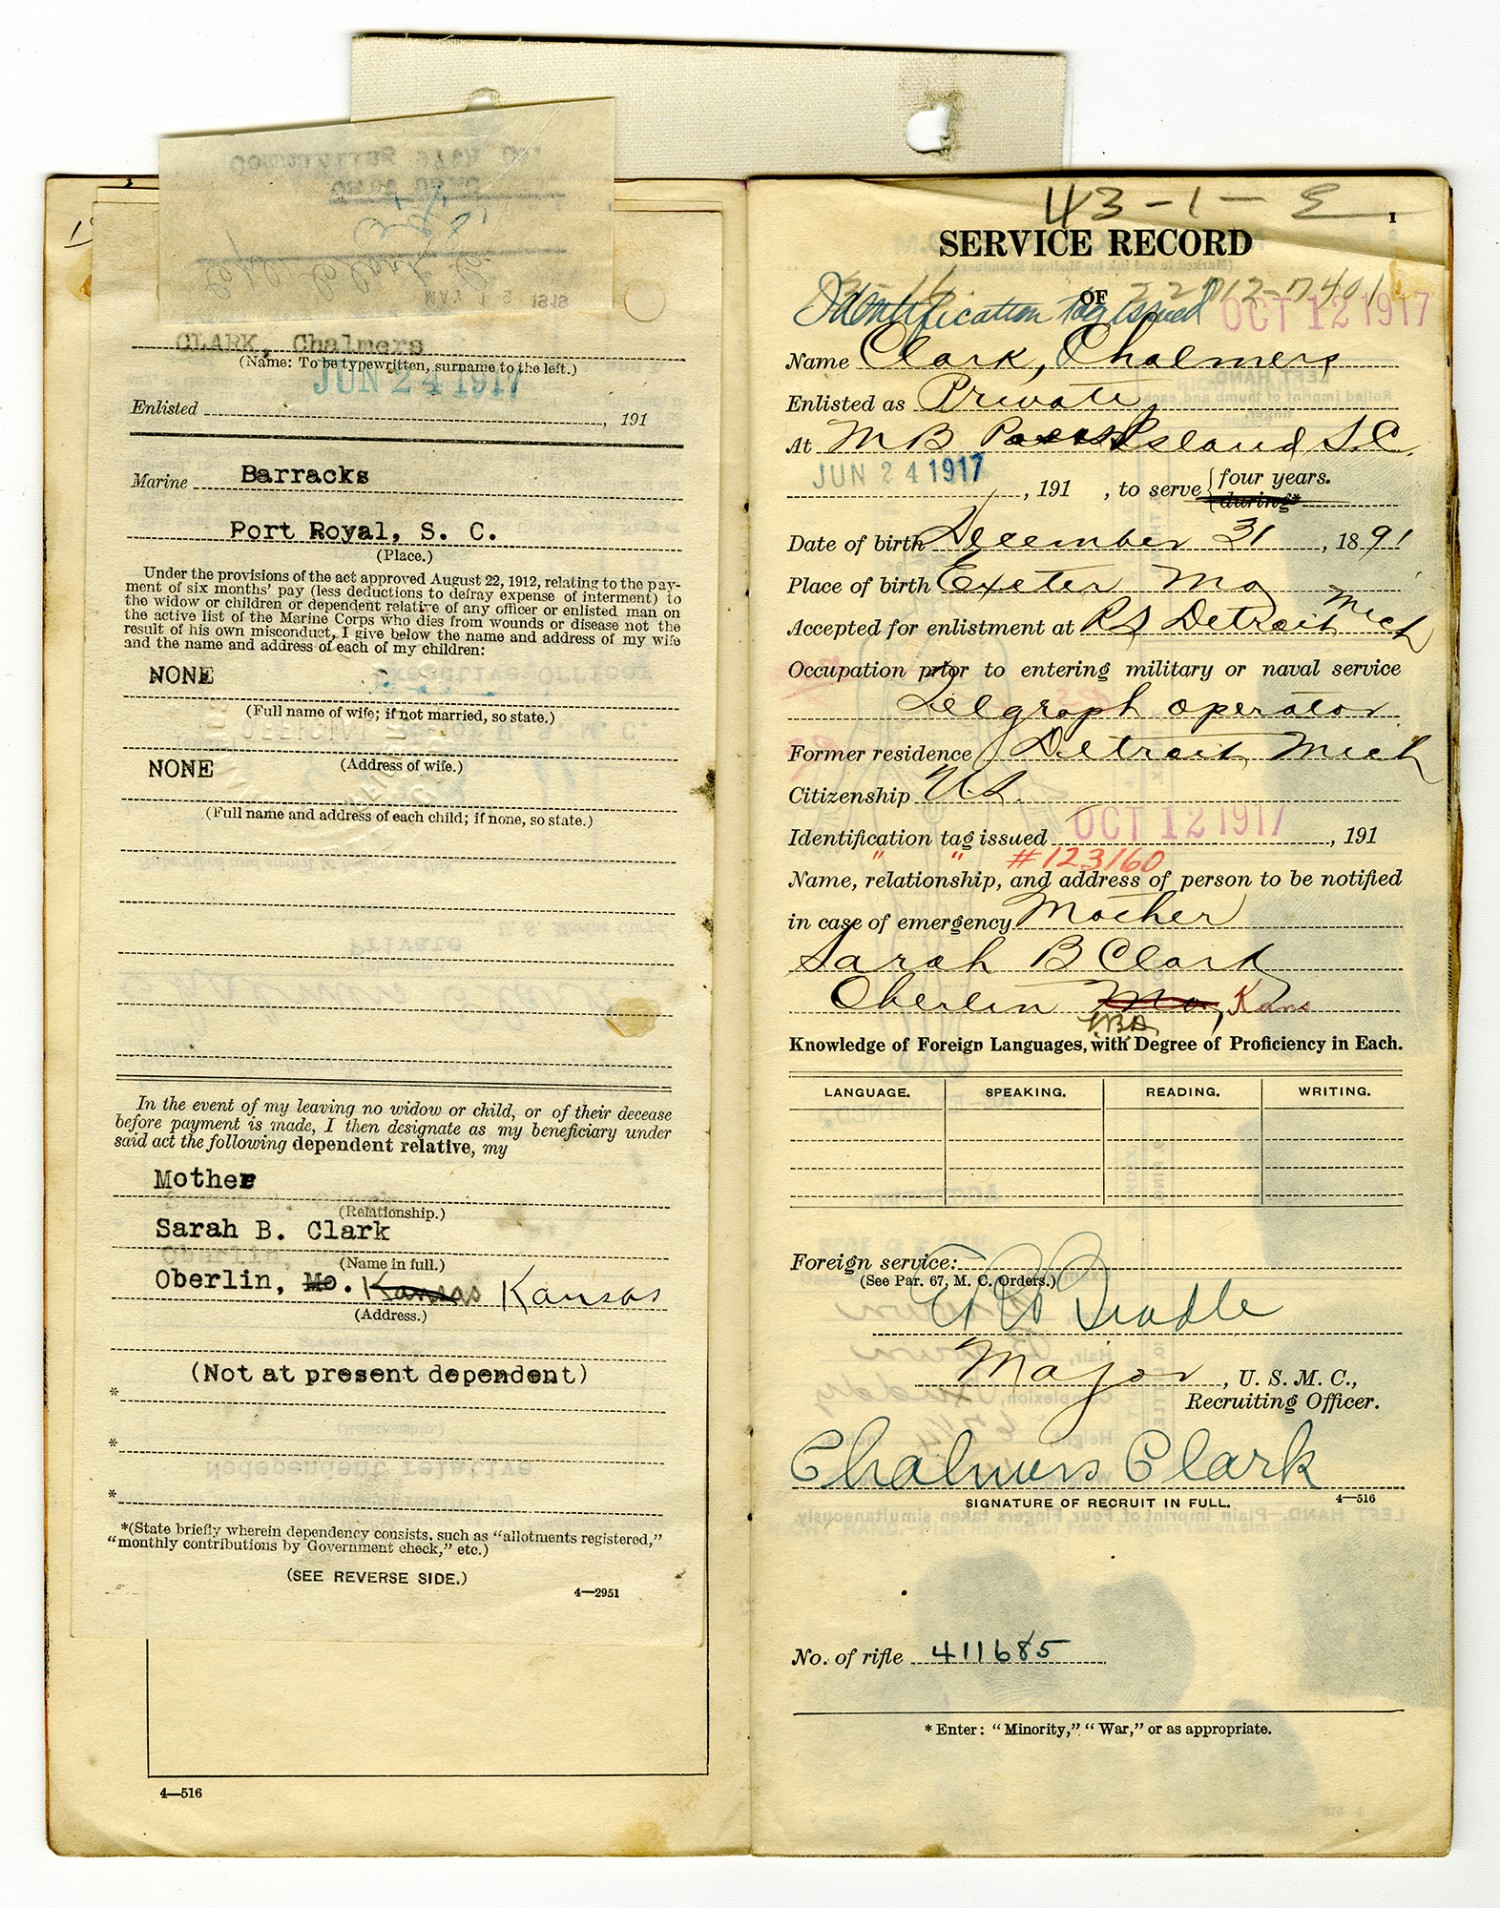 CLARK, Chalmers
(Name: To be typewritten, surname to the left.)
JUN 24 1917
Enlisted , 191
Marine Barracks
Port Royal, S. C.
(Place.)
Under the provisions of the act approved August 22, 1912, relating to the pay-
ment of six months' pay (less deductions to defray expense of interment) to
the widow or children or dependent relative of any officer or enlisted man on
the active list of the Marine Corps who dies from wounds or disease not the
result of his own misconduct, I give below the name and address of my wife
and the name and address of each of my children:
NONE
(Full name of wife; if not married, so state.)
(Address of wife.)
NONE
(Full name and address of each child; if none, so state.)
In the event of my leaving no widow or child, or of their decease
before payment is made, I then designate as my beneficiary under
said act the following dependent relative, my
Mother
(Relationship.)
Sarah B. Clark
(Name in full.)
Oberlin, Mo. Kansas Kansas
(Address.)
(Not at present dependent)
*
*
*
*(State briefly wherein dependency consists, such as "allotments registered,"
"monthly contributions by Government check," etc.)
(SEE REVERSE SIDE.)
4—2951
4—516
43-1-E
1
SERVICE RECORD
OF
Identification tag issued OCT 12 1917
Name Clark, Chalmers
Enlisted as Private
At M B Paris Island S.C.
JUN 24 1917 , 191 , to serve four years.
during*
Date of birth December 31 , 1891
Place of birth Exeter Mo
Accepted for enlistment at RS Detroit Mich
Occupation prior to entering military or naval service
Telgraph operator
Former residence Detroit Mich
Citizenship U.S.
Identification tag issued OCT 12 1917 , 191
" " #123160
Name, relationship, and address of person to be notified
in case of emergency Mother
Sarah B Clark
Oberlin Mo, Kans
Knowledge of Foreign Languages, with Degree of Proficiency in Each.
LANGUAGE. SPEAKING. READING. WRITING.
Foreign service:
(See Par. 67, M. C. Orders.)
Major , U. S. M. C.,
Recruiting Officer.
Chalmers Clark
SIGNATURE OF RECRUIT IN FULL. 4—516
No. of rifle 411685
* Enter: "Minority," "War," or as appropriate.